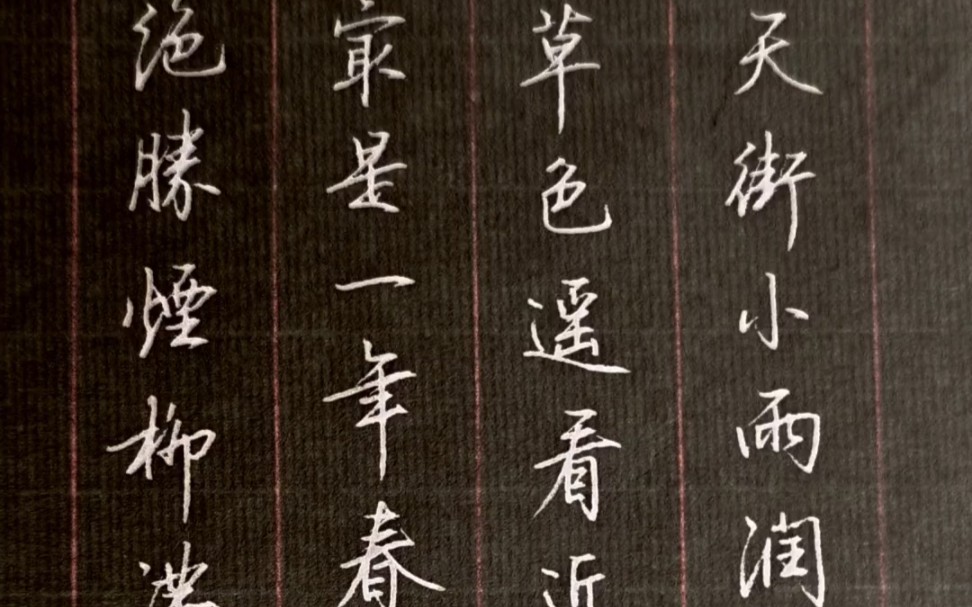 天街小雨润
草色遥看近
冣是一年春
绝勝煙柳满